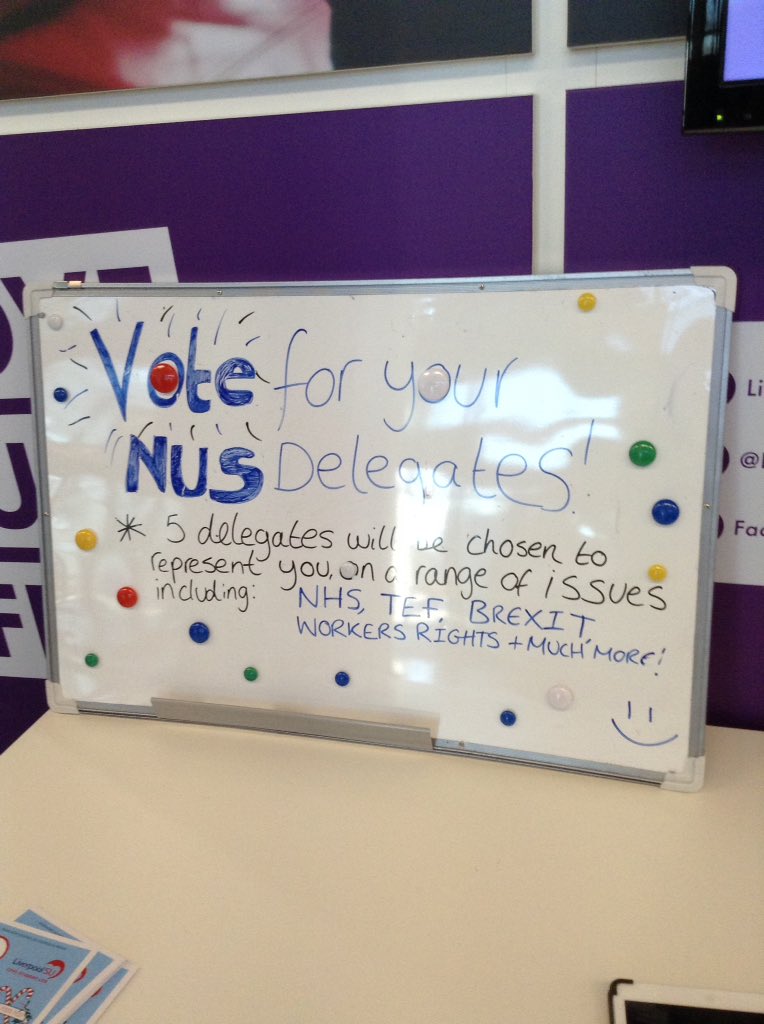 Vote for your
NUS Delegates!
* 5 delegates will be chosen to
represent you, on a range of issues
including: NHS, TEF, BREXIT,
WORKERS RIGHTS + MUCH MORE!
Li
@
Fac
LiverpoolSU